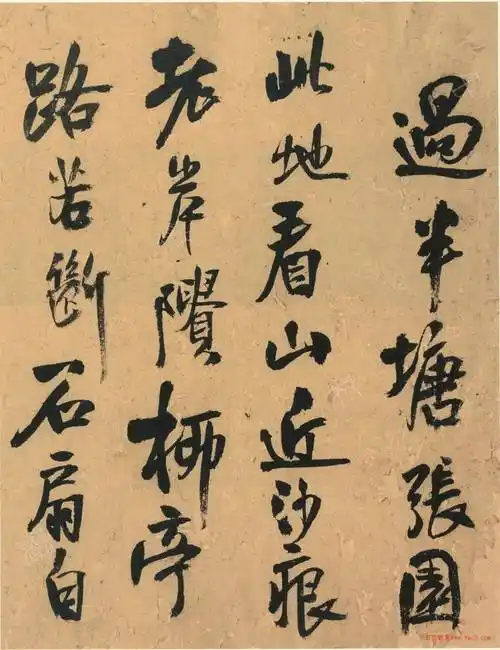 過半塘張園
此地看山近沙痕
老岸隤柳亭
路若斷石扇自